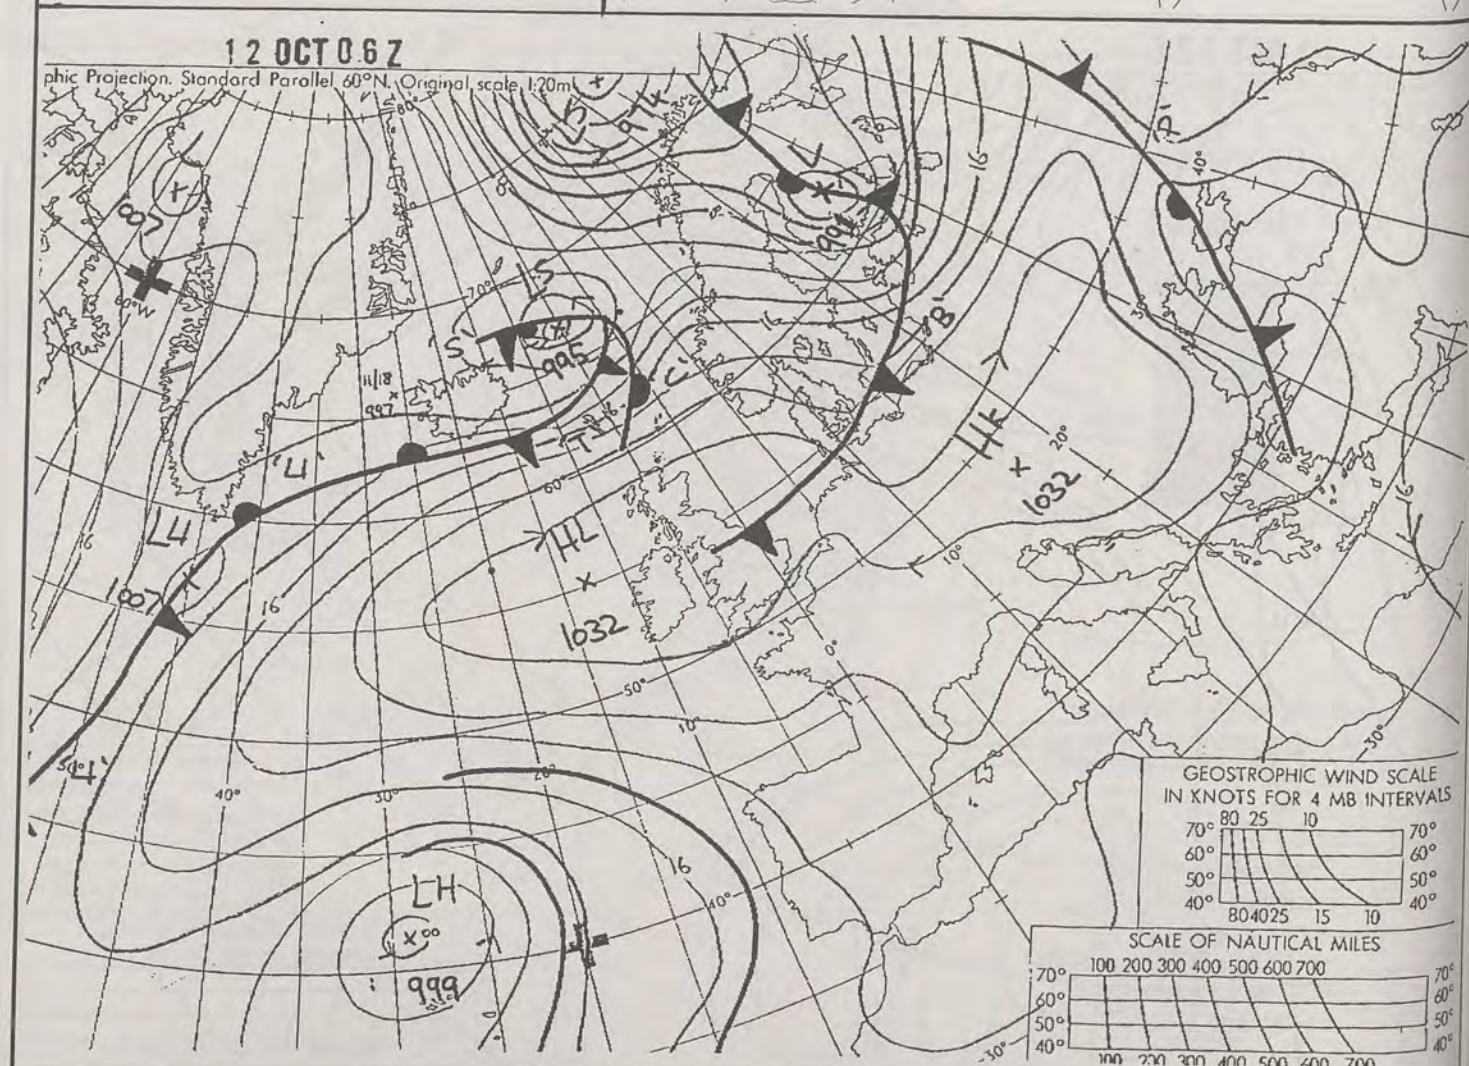 12 OCT 06Z
phic Projection. Standard Parallel 60°N. Original scale 1:20m
80°
974
L
994
16
'A'
40°
L
997
60°W
70°
LS
'S'
995
11/18
997
'C'
'B'
16
HK
1032
20°
30°
16
'4'
LU
1007
60°
HL
1032
16
10°
0°
50°
10°
'4'
40°
30°
20°
16
40°
LH
999
30°
30°
GEOSTROPHIC WIND SCALE
IN KNOTS FOR 4 MB INTERVALS
80 25 10
70° 70°
60° 60°
50° 50°
40° 40°
80 40 25 15 10
SCALE OF NAUTICAL MILES
100 200 300 400 500 600 700
70° 70°
60° 60°
50° 50°
40° 40°
100 200 300 400 500 600 700